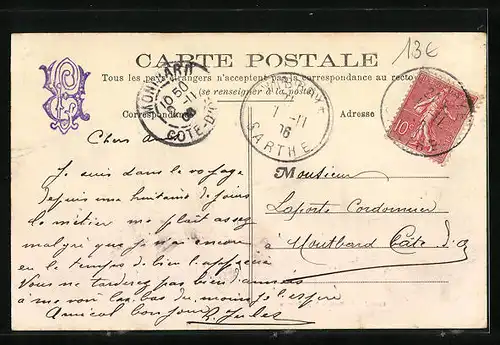 13€
CARTE POSTALE
Tous les pays étrangers n'acceptent pas la correspondance au recto
(se renseigner à la poste)
Correspondance
Adresse
MONTBARD
10 50
-11
COTE-D'OR
7 -11
SARTHE
10
Chers
Je suis dans le voyage
depuis une huitaine de jours
le métier me plait assez
malgré que je n'ai encore
eu le temps de bien l'apprécier
Vous ne tarderez pas bien d'
à me voir las bas du moins je l'espère
Amical bonjour
Jules
Monsieur
Laporte Cordonnier
à Montbard Côte d'or